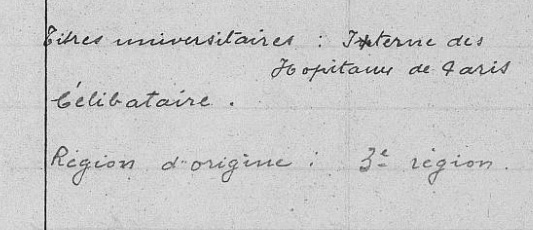 Titres universitaires : Interne des
Hopitaux de Paris
Célibataire.
Région d'origine : 3e région.